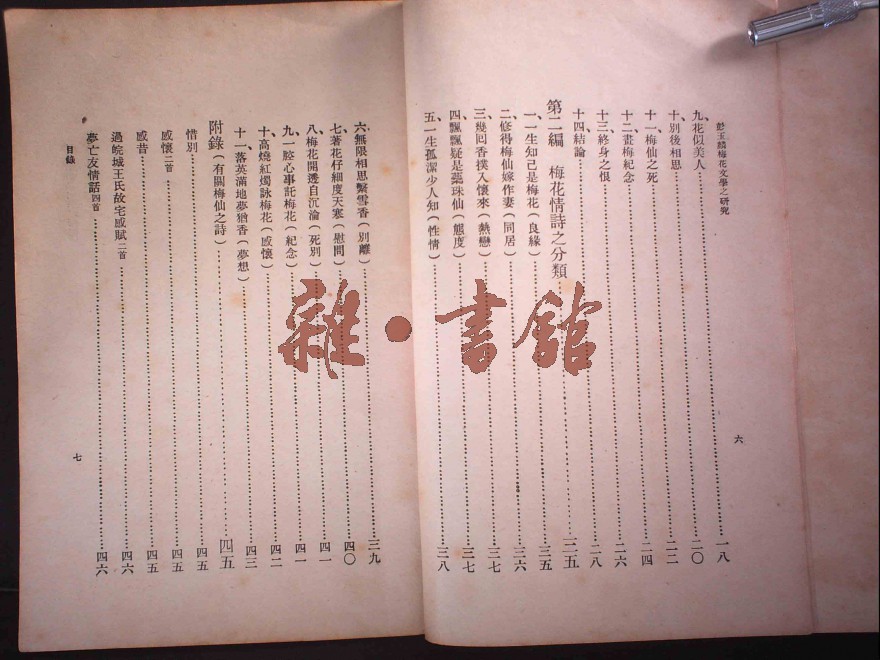 彭玉麟梅花文學之研究
九、花似美人……一八
十、別後相思……二〇
十一、梅仙之死……二二
十二、畫梅紀念……二四
十三、終身之恨……二六
十四、結論……二八
第二編　梅花情詩之分類……三五
一、一生知己是梅花(良緣)……三五
二、修得梅仙嫁作妻(同居)……三六
三、幾回香撲入懷來(熱戀)……三七
四、飄飄疑是蕊珠仙(態度)……三七
五、一生孤潔少人知(性情)……三八
六
六、無限相思繫雪香(別離)……三九
七、著花仔細度天寒(慰問)……四〇
八、梅花開遲自沉淪(死別)……四一
九、一腔心事託梅花(紀念)……四一
十、高燒紅燭詠梅花(感懷)……四二
十一、落英滿地夢猶香(夢想)……四三
附錄(有關梅仙之詩)……四五
惜別……四五
感懷二首……四五
感昔……四五
過皖城王氏故宅感賦二首……四六
夢亡友情話四首……四六
目錄
七
雜・書館